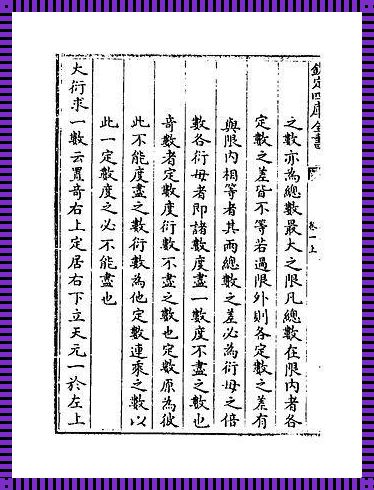 欽定四庫全書
卷一上
之數亦為總數最大之限凡總數在限內者各
定數之差皆不等若過限外則各定數之差有
與限內相等者其兩總數之差必為衍母之倍
數各衍母者即諸數度盡一數度不盡之數也
奇數者定數度衍數不盡之數也定數原為彼
此不能度盡之數衍數為他定數連乘之數以
此一定數度之必不能盡也
大衍求一數云置奇右上定居右下立天元一於左上